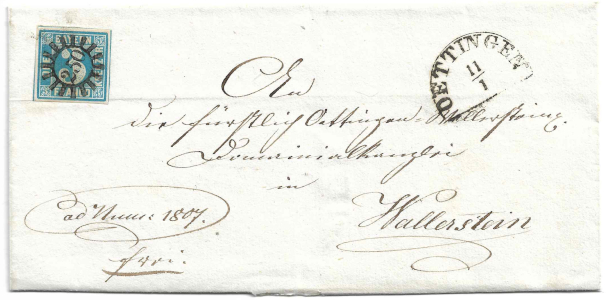 250
OETTINGEN
11
1
An
die fürstlich Oettingen-Wallerstein.
Domainialkanzlei
in
Wallerstein
ad Num: 1807.
frei.